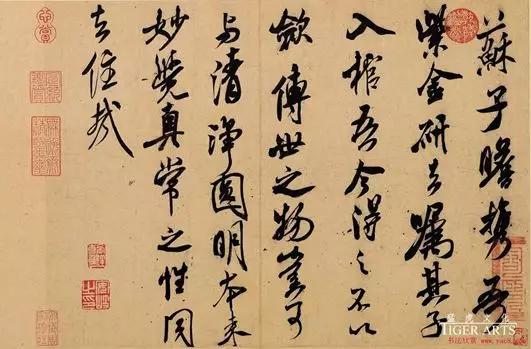 蘇子瞻携吾
紫金研去嘱其子
入棺吾今得之不以
斂傳世之物豈可
与清淨圓明本来
妙覺真常之性同
去住哉
TIGER ARTS